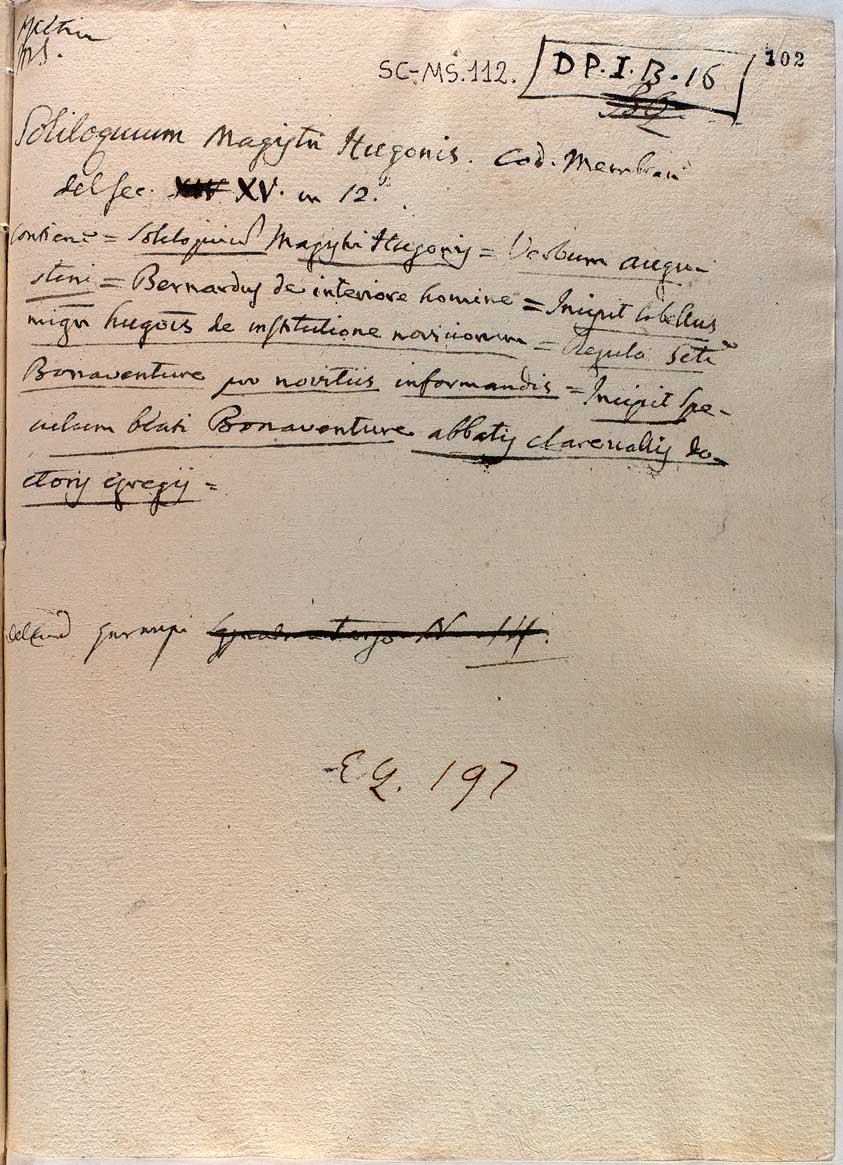 MS.
SC-MS.112. DP.I.B.16 102
Soliloquium Magistri Hugonis. Cod. Membran
del sec. XIV XV. in 12.
contiene = Soliloquiu Magistri Hugonis = Verbum augu-
stini = Bernardus de interiore homine = Incipit libellus
mĝri hugois de institutione noviciorum = Regula Scti
Bonaventure pro novitiis informandis = Incipit Spe-
culum bēati Bonaventure abbatis clarevallis do-
ctoris egregij =
EQ. 197